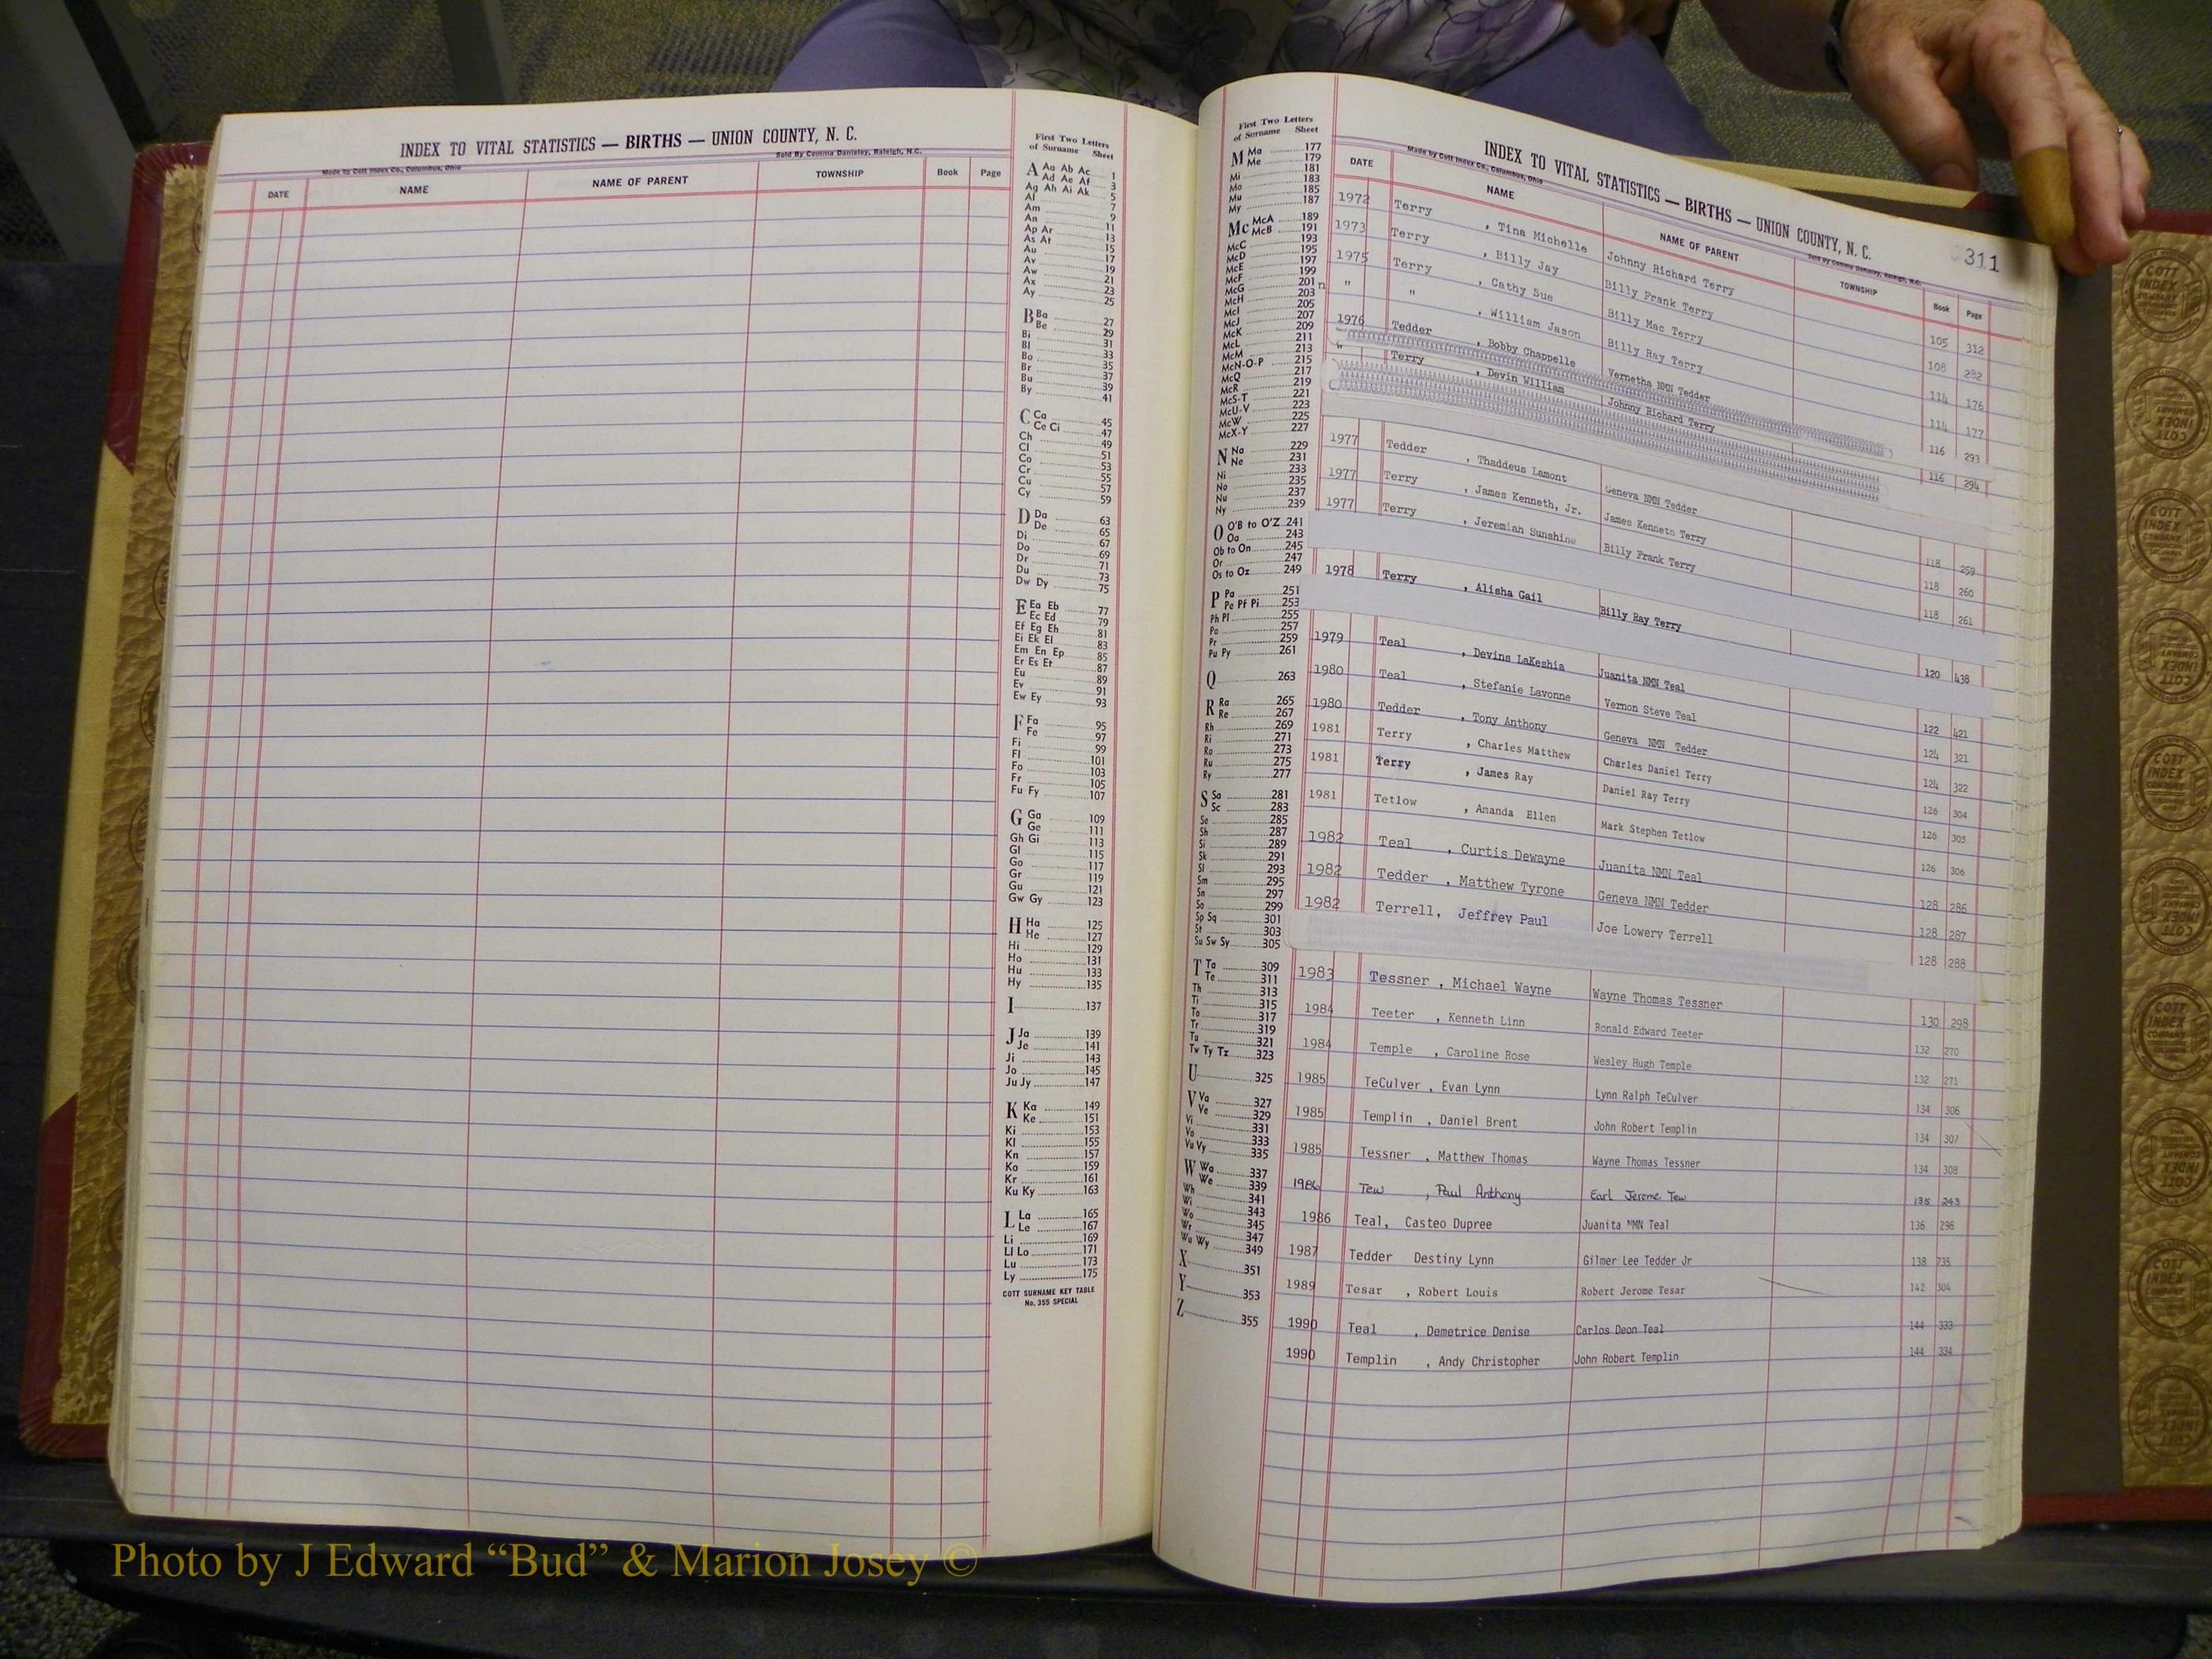 INDEX TO VITAL STATISTICS — BIRTHS — UNION COUNTY, N. C.
Made by Cott Index Co., Columbus, Ohio
Sold By Comma Danieley, Raleigh, N.C.
DATE NAME NAME OF PARENT TOWNSHIP Book Page
First Two Letters
of Surname Sheet
A Aa Ab Ac 1
Ad Ae Af 3
Ag Ah Ai Ak 5
Al 7
Am 9
An 11
Ap Ar 13
As At 15
Au 17
Av 19
Aw 21
Ax 23
Ay 25
B Ba 27
Be 29
Bi 31
Bl 33
Bo 35
Br 37
Bu 39
By 41
C Ca 45
Ce Ci 47
Ch 49
Cl 51
Co 53
Cr 55
Cu 57
Cy 59
D Da 63
De 65
Di 67
Do 69
Dr 71
Du 73
Dw Dy 75
E Ea Eb 77
Ec Ed 79
Ef Eg Eh 81
Ei Ek El 83
Em En Ep 85
Er Es Et 87
Eu 89
Ev 91
Ew Ey 93
F Fa 95
Fe 97
Fi 99
Fl 101
Fo 103
Fr 105
Fu Fy 107
G Ga 109
Ge 111
Gh Gi 113
Gl 115
Go 117
Gr 119
Gu 121
Gw Gy 123
H Ha 125
He 127
Hi 129
Ho 131
Hu 133
Hy 135
I 137
J Ja 139
Je 141
Ji 143
Jo 145
Ju Jy 147
K Ka 149
Ke 151
Ki 153
Kl 155
Kn 157
Ko 159
Kr 161
Ku Ky 163
L La 165
Le 167
Li 169
Ll Lo 171
Lu 173
Ly 175
COTT SURNAME KEY TABLE
No. 355 SPECIAL
First Two Letters
of Surname Sheet
M Ma 177
Me 179
Mi 181
Mo 183
Mu 185
My 187
Mc McA 189
McB 191
McC 193
McD 195
McE 197
McF 199
McG 201
McH 203
McI 205
McJ 207
McK 209
McL 211
McM 213
McN-O-P 215
McQ 217
McR 219
McS-T 221
McU-V 223
McW 225
McX-Y 227
N Na 229
Ne 231
Ni 233
No 235
Nu 237
Ny 239
O O'B to O'Z 241
Oa 243
Ob to On 245
Or 247
Os to Oz 249
P Pa 251
Pe Pf Pi 253
Ph Pl 255
Po 257
Pr 259
Pu Py 261
Q 263
R Ra 265
Re 267
Rh 269
Ri 271
Ro 273
Ru 275
Ry 277
S Sa 281
Sc 283
Se 285
Sh 287
Si 289
Sk 291
Sl 293
Sm 295
Sn 297
So 299
Sp Sq 301
St 303
Su Sw Sy 305
T Ta 309
Te 311
Th 313
Ti 315
To 317
Tr 319
Tu 321
Tw Ty Tz 323
U 325
V Va 327
Ve 329
Vi 331
Vo 333
Vu Vy 335
W Wa 337
We 339
Wh 341
Wi 343
Wo 345
Wr 347
Wu Wy 349
X 351
Y 353
Z 355
INDEX TO VITAL STATISTICS — BIRTHS — UNION COUNTY, N. C.
Made by Cott Index Co., Columbus, Ohio
Sold By Comma Danieley, Raleigh, N.C.
311
DATE NAME NAME OF PARENT TOWNSHIP Book Page
1972 Terry , Tina Michelle Johnny Richard Terry 105 312
1973 Terry , Billy Jay Billy Frank Terry 108 282
1975 Terry , Cathy Sue Billy Mac Terry 114 176
" " , William Jason Billy Ray Terry 114 177
1976 Tedder , Bobby Chappelle Vernetha NMN Tedder 116 293
" Terry , Devin William Johnny Richard Terry 116 294
1977 Tedder , Thaddeus Lamont Geneva NMN Tedder 118 259
1977 Terry , James Kenneth, Jr. James Kenneth Terry 118 260
1977 Terry , Jeremiah Sunshine Billy Frank Terry 118 261
1978 Terry , Alisha Gail Billy Ray Terry 120 438
1979 Teal , Devins LaKeshia Juanita NMN Teal 122 421
1980 Teal , Stefanie Lavonne Vernon Steve Teal 124 321
1980 Tedder , Tony Anthony Geneva NMN Tedder 124 322
1981 Terry , Charles Matthew Charles Daniel Terry 126 304
1981 Terry , James Ray Daniel Ray Terry 126 305
1981 Tetlow , Amanda Ellen Mark Stephen Tetlow 126 306
1982 Teal , Curtis Dewayne Juanita NMN Teal 128 286
1982 Tedder , Matthew Tyrone Geneva NMN Tedder 128 287
1982 Terrell, Jeffrey Paul Joe Lowery Terrell 128 288
1983 Tessner , Michael Wayne Wayne Thomas Tessner 130 298
1984 Teeter , Kenneth Linn Ronald Edward Teeter 132 270
1984 Temple , Caroline Rose Wesley Hugh Temple 132 271
1985 TeCulver , Evan Lynn Lynn Ralph TeCulver 134 306
1985 Templin , Daniel Brent John Robert Templin 134 307
1985 Tessner , Matthew Thomas Wayne Thomas Tessner 134 308
1986 Tew , Paul Anthony Earl Jerome Tew 135 243
1986 Teal, Casteo Dupree Juanita NMN Teal 136 296
1987 Tedder Destiny Lynn Gilmer Lee Tedder Jr 138 735
1989 Tesar , Robert Louis Robert Jerome Tesar 142 304
1990 Teal , Demetrice Denise Carlos Deon Teal 144 333
1990 Templin , Andy Christopher John Robert Templin 144 334
Photo by J Edward “Bud” & Marion Josey ©